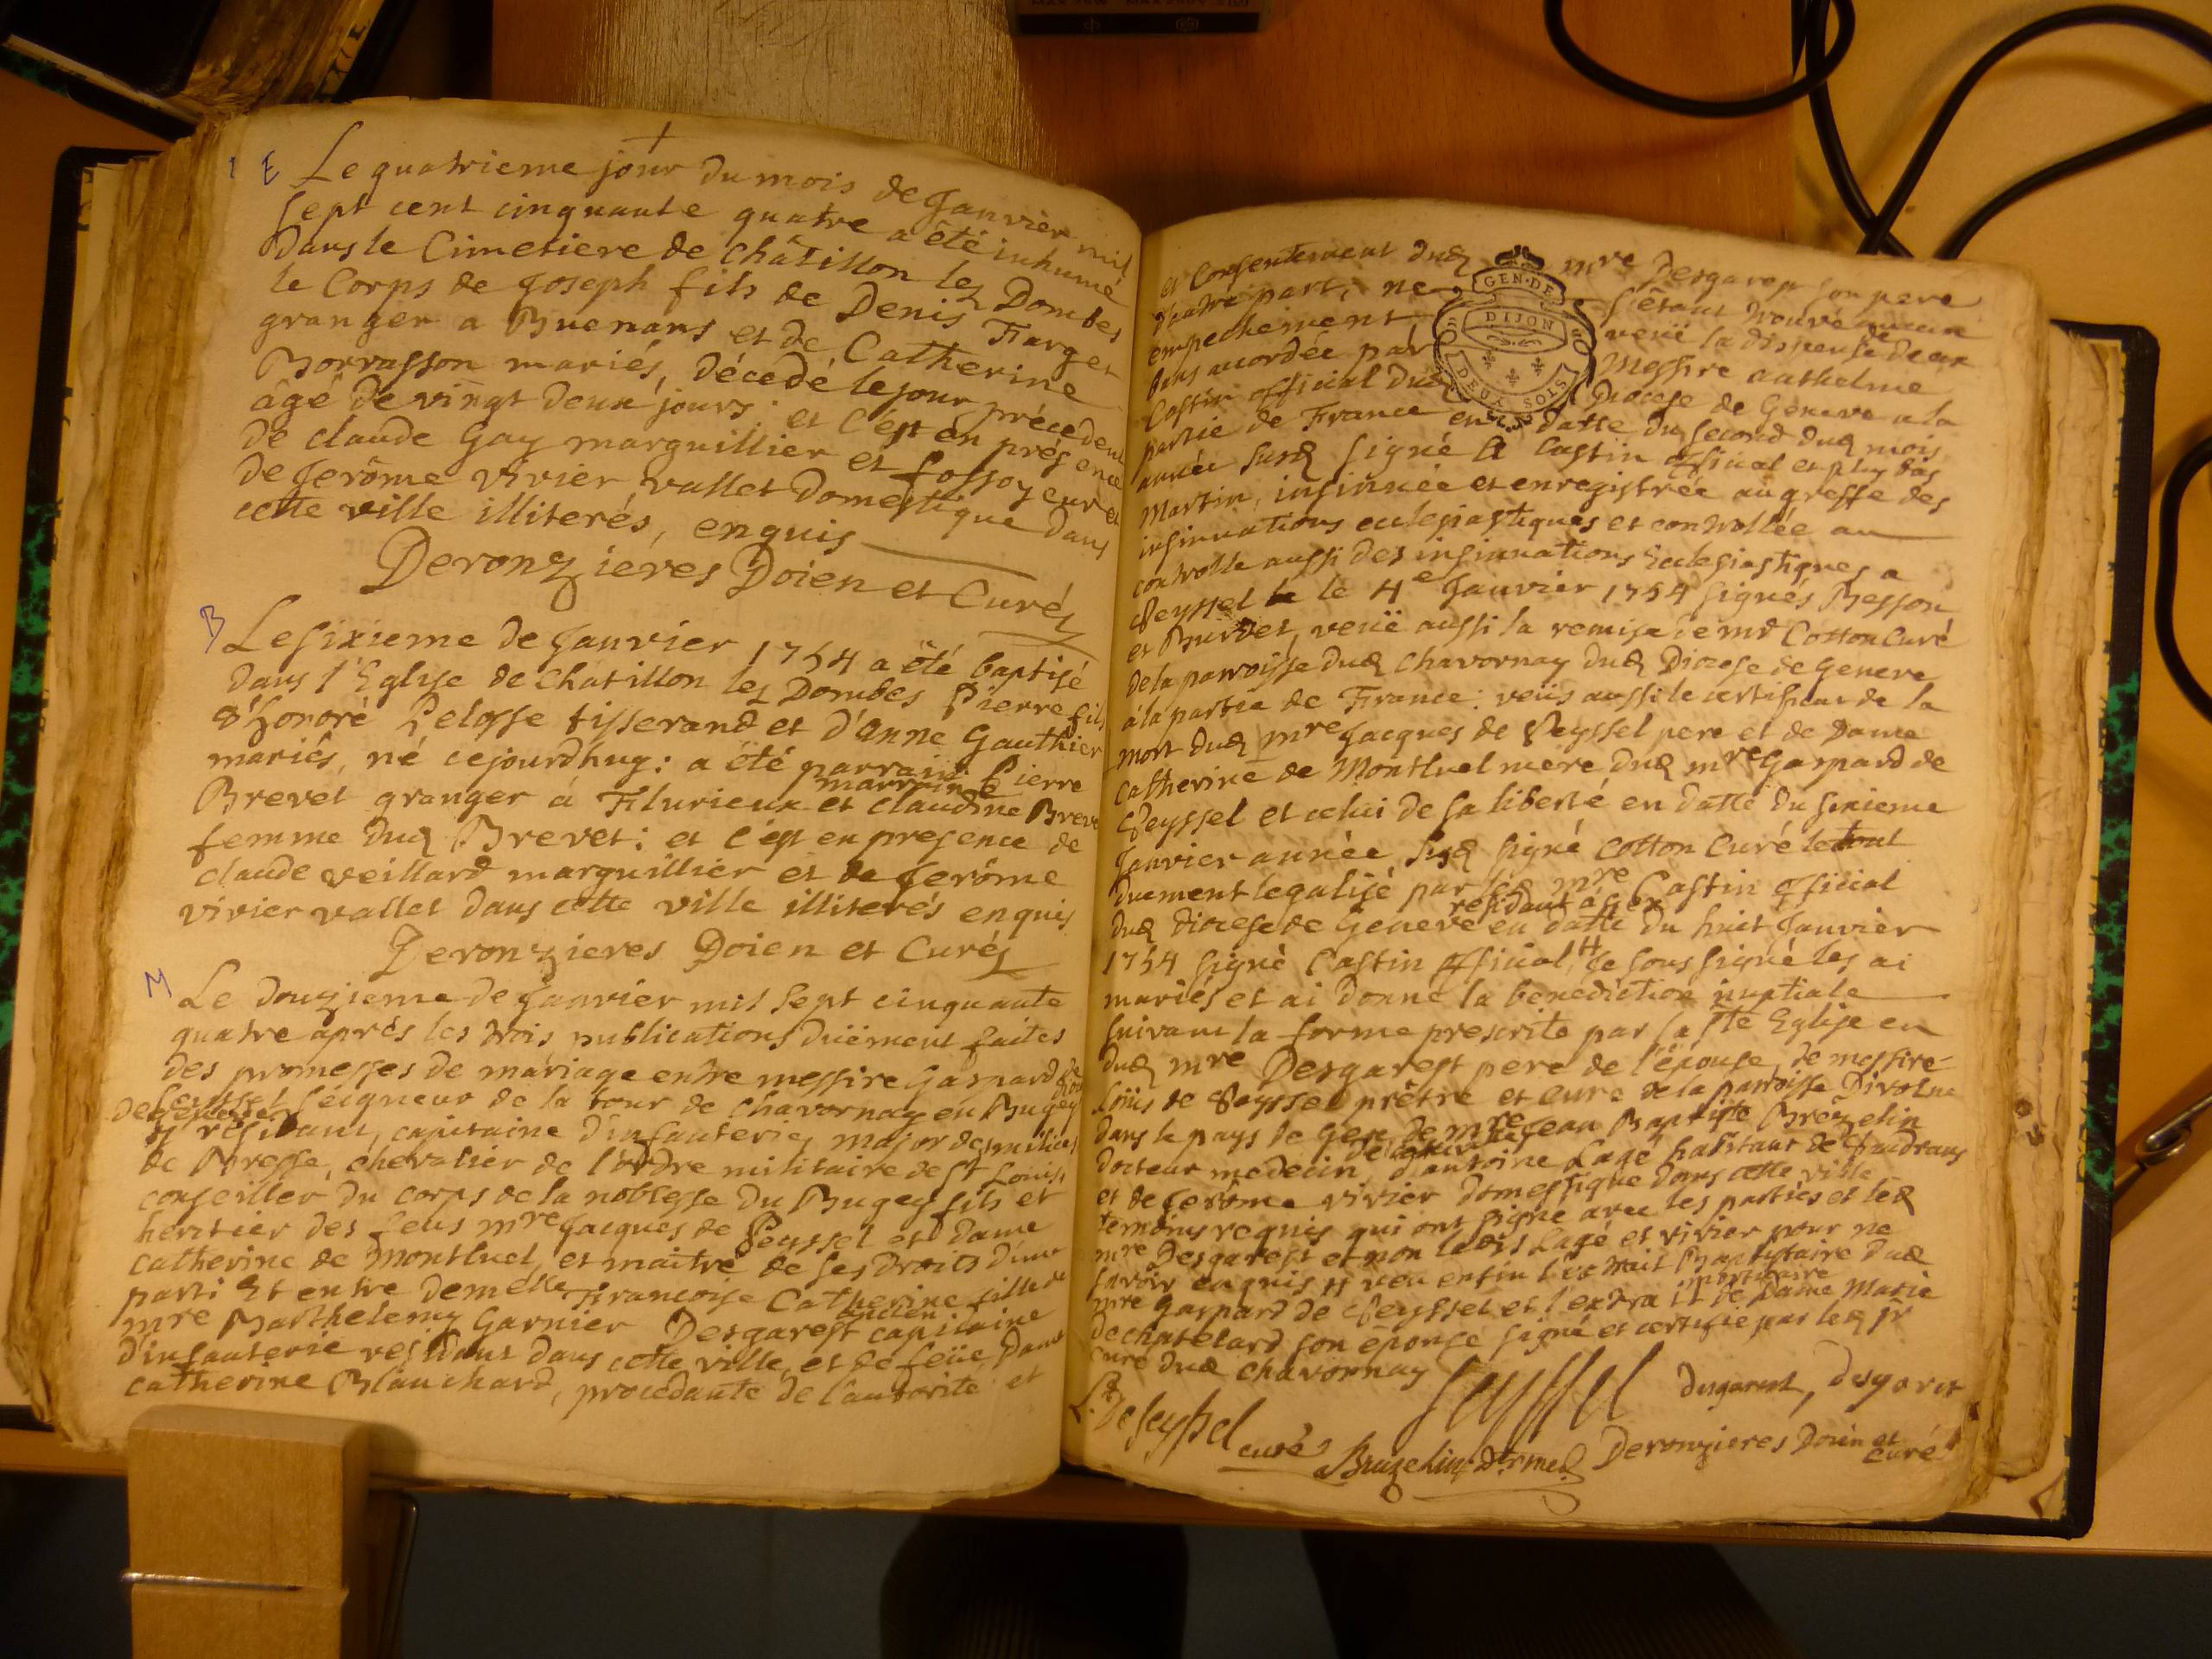 1 E Le quatrieme jour du mois de Janvier mil
sept cent cinquante quatre a été inhumé
dans le Cimetiere de Châtillon les Dombes
le Corps de Joseph fils de Denis Farget
granger a Buenans et de Catherine
Morvasson mariés, décedé le jour précedent
âgé de vingt deux jours: et c'est en présence
de claude Gay marguillier et fossoyeur et
de Jerôme vivier vallet domestique dans
cette ville illiterés, enquis
Deronzieres Doien et Curé
B Le sixieme de Janvier 1754 a été baptisé
dans l'Eglise de Chatillon les Dombes Pierre fils
d'honoré Pelosse tisserand et d'anne Gauthier
mariés, né cejourdhuy: a été parrain Pierre
Brevet granger à Flurieux et marraine claudine Brevet
femme dud Brevet: et c'est en presence de
claude veillard marguillier et de Jerôme
vivier vallet dans cette ville illiterés enquis
Deronzieres Doien et Curé
M Le douzieme de Janvier mil sept cinquante
quatre aprés les trois publications düement faites
des promesses de mariage entre messire Gaspard
de Seyssel seigneur de la tour de Chavornay en Bugey
y residant, capitaine d'infanterie, major des milices
de Bresse, chevalier de l'ordre militaire de st Louis,
conseiller du corps de la noblesse du Bugey fils et
heritier des feus mre Jacques de Seyssel et dame
catherine de Montluel, et maitre de ses droits d'une
parti Et entre demelle Francoise Catherine fille de
mre Barthelemy Garnier Desgarest ancien capitaine
d'infanterie residant dans cette ville, et de feüe Dame
catherine Blanchard, procedante de l'autorité et
et Consentement dud mre Desgarest son pere
d'autre part, ne s'étant trouvé aucun
empechement veüe la dispense de deux
bans accordée par Messire anthelme
Castin official dud Diocese de Geneve a la
partie de France en datte du second dud mois
année susd signé A Castin official et plus bas
Martin, insinuée et enregistrée au greffe des
insinuations ecclesiastiques et controllée au
controlle aussi des insinuations Ecclesiastiques a
Seyssel le 4e Janvier 1754 signés Besson
et Burdet, veüe aussi la remise de mr Cotton Curé
de la parroisse dud Chavornay dud Diocese de Geneve
à la partie de France: veüs aussi le certificat de la
mort dud mre Jacques de Seyssel pere et de Dame
Catherine de Montluel mère dud mre Gaspard de
Seyssel et celui de sa liberté en datte du sixieme
Janvier année susd signé Cotton Curé le tout
duement legalisé par led mre Castin official
dud diocese de Geneve residant à Gex en datte du huit Janvier
1754 signé Castin official, Je sous signé les ai
mariés et ai donné la benediction nuptiale
suivant la forme prescrite par la ste Eglise en
dud mre Desgarest pere de l'épouse, de messire
Loüis de Seyssel prêtre et curé de la parroisse Divonne
dans le pays de Gex de mre Jean Baptiste Brezelin
docteur medecin d'antoine Lagé habitant de
et de Jerôme vivier domestique dans cette ville
temoins requis qui ont signé avec les parties et led
mre Desgarest et non lesds Lagé et vivier pour ne
savoir enquis veu enfin l'extrait Baptistaire dud
mre Gaspard de Seyssel et l'extrait mortuaire de Dame Marie
de chatelard son epouse signé et certifié par led sr
curé dud chavornay
Seyssel Desgarest, Desgarest
L. De Seyssel curé Brezelin Deronzieres Doien et curé
GEN. DE
DIJON
DEUX SOLS